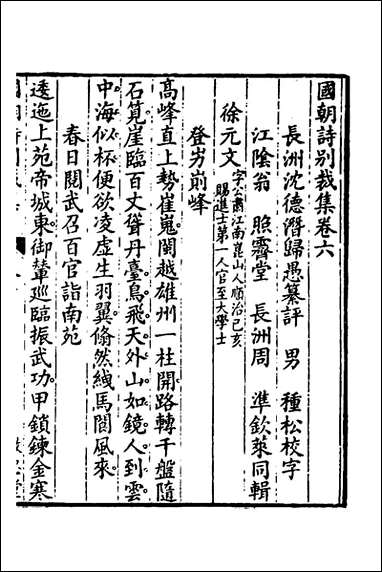 國朝詩別裁集卷六
長洲沈德潛歸愚纂評 男 種松校字
江陰翁 照霽堂 長洲周 準欽萊同輯
徐元文 字公肅江南崑山人順治己亥
賜進士第一人官至大學士
登岝崱峰
高峰直上勢崔嵬閩越雄州一柱開路轉千盤隨
石筧崖臨百丈聳丹臺鳥飛天外山如鏡人到雲
中海似杯便欲凌虛生羽翼翛然緤馬閬風來
春日閱武召百官詣南苑
逶迤上苑帝城東御輦巡臨振武功甲鎖鍊金寒